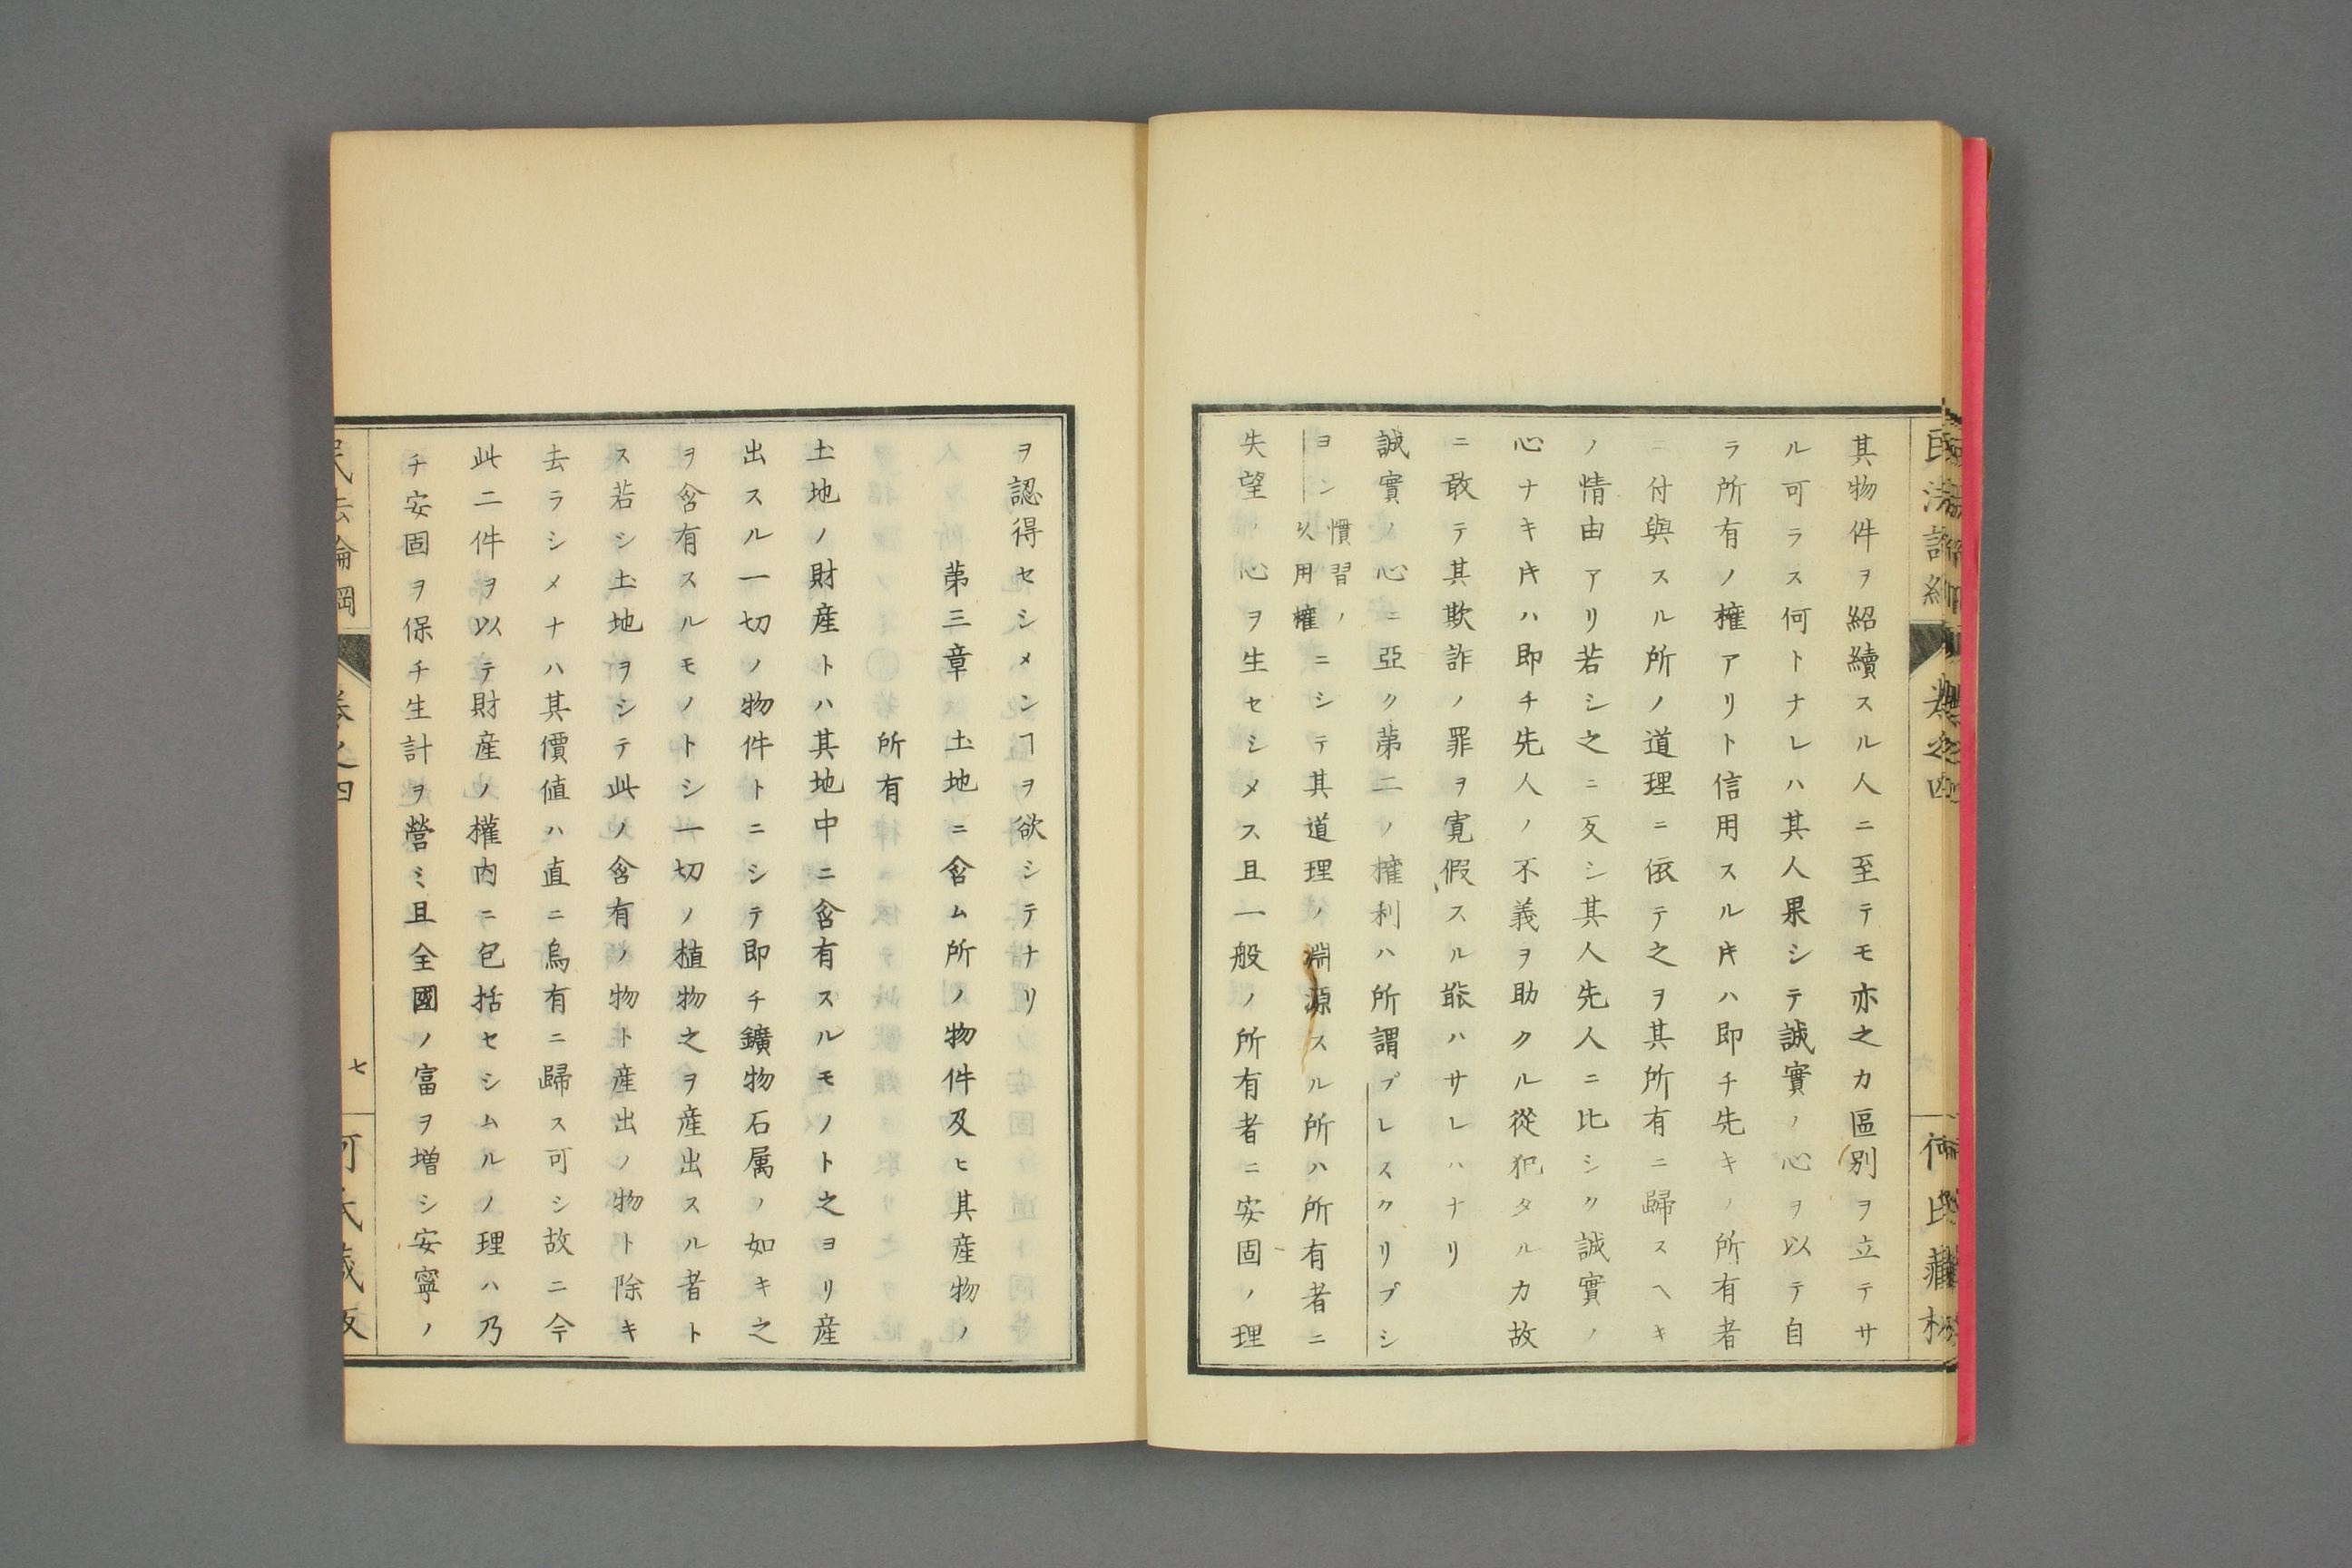 其物件ヲ紹續スル人ニ至テモ亦之カ區別ヲ立テサ
ル可ラス何トナレハ其人果シテ誠實ノ心ヲ以テ自
ラ所有ノ權アリト信用スル𪜈ハ即チ先キノ所有者
ニ付與スル所ノ道理ニ依テ之ヲ其所有ニ歸スヘキ
ノ情由アリ若シ之ニ反シ其人先人ニ比シク誠實ノ
心ナキ𪜈ハ即チ先人ノ不義ヲ助クル從犯タルカ故
ニ敢テ其欺詐ノ罪ヲ寛假スル能ハサレハナリ
誠實ノ心ニ亞ク第二ノ權利ハ所謂プレスクリプシ
ヨン慣習ノ久用權ニシテ其道理ノ淵源スル所ハ所有者ニ
失望ノ心ヲ生セシメス且一般ノ所有者ニ安固ノ理
ヲ認得セシメンヿヲ欲シテナリ
第三章 土地ニ含ム所ノ物件及ヒ其産物ノ
所有
土地ノ財産トハ其地中ニ含有スルモノト之ヨリ産
出スル一切ノ物件トニシテ即チ鑛物石属ノ如キ之
ヲ含有スルモノトシ一切ノ植物之ヲ産出スル者ト
ス若シ土地ヲシテ此ノ含有ノ物ト産出ノ物ト除キ
去ラシメナハ其價値ハ直ニ烏有ニ歸ス可シ故ニ今
此二件ヲ以テ財産ノ權内ニ包括セシムルノ理ハ乃
チ安固ヲ保チ生計ヲ營ミ且全國ノ富ヲ増シ安寧ノ
民法論綱 卷之四 七 何氏藏版